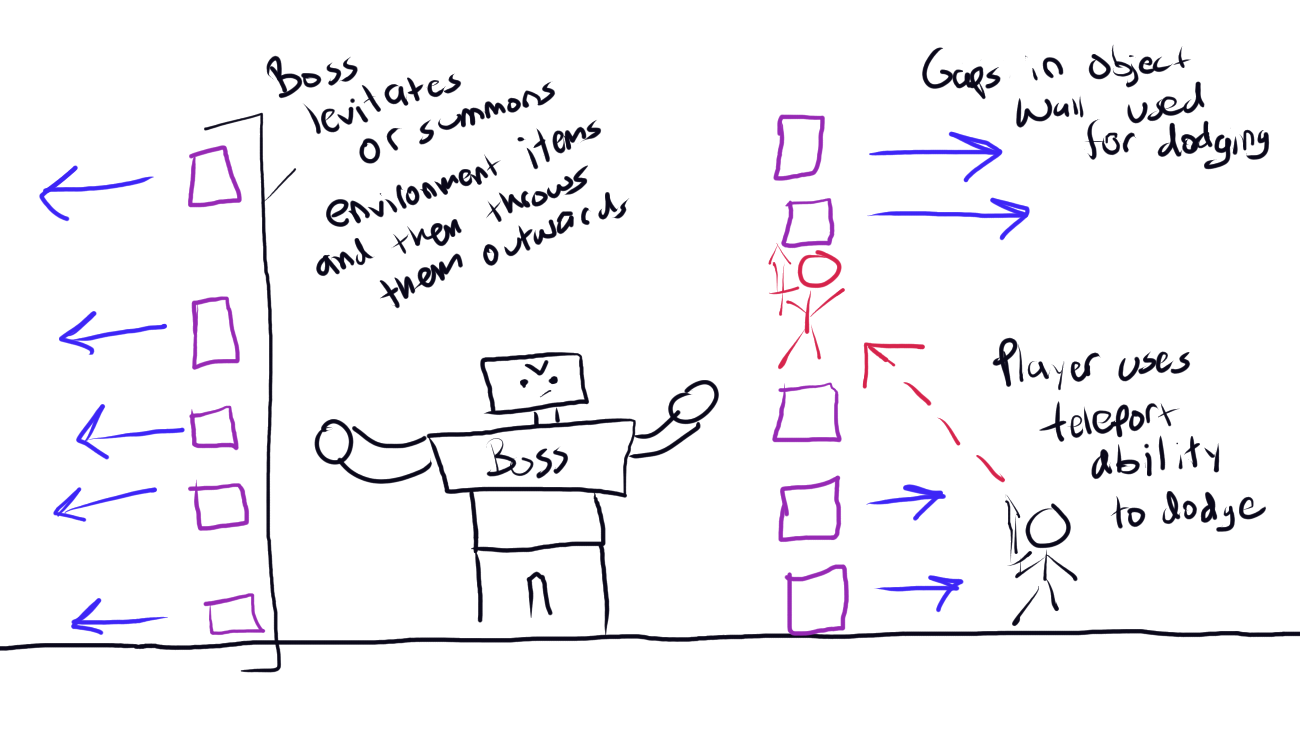 Boss
levitates
or summons
environment items
and then throws
them outwards
Gaps in object
wall used
for dodging
Player uses
teleport
ability
to dodge
Boss